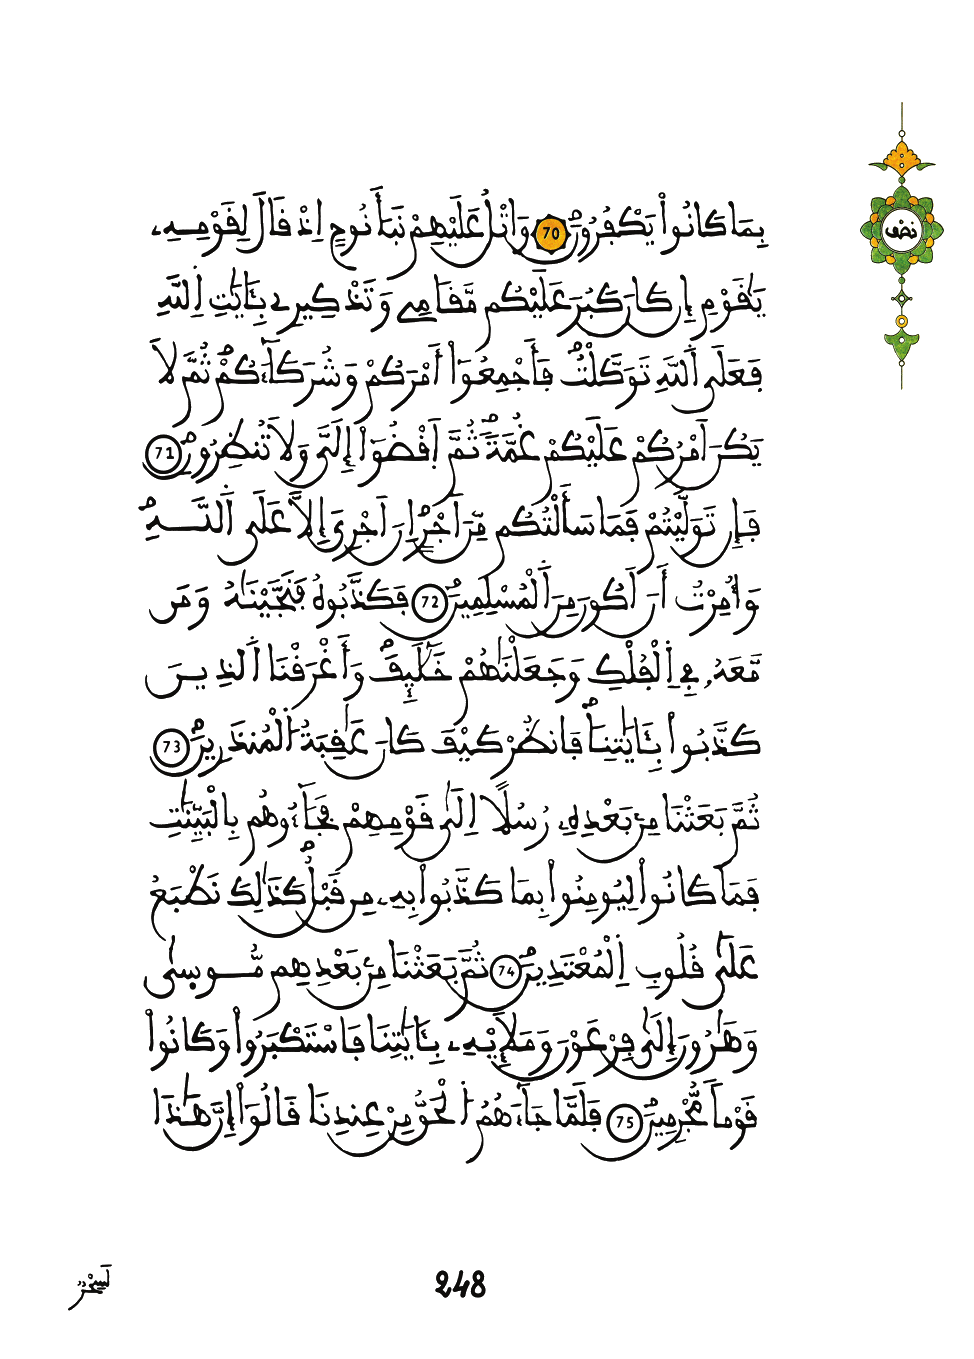 بِمَا كَانُوا۟ يَكْفُرُونَ 70 وَاتْلُ عَلَيْهِمْ نَبَأَ نُوحٍ اِذْ قَالَ لِقَوْمِهِۦ
يَٰقَوْمِ إِن كَانَ كَبُرَ عَلَيْكُم مَّقَامِے وَتَذْكِيرِے بِـَٔايَٰتِ اِ۬للَّهِ
فَعَلَى اَ۬للَّهِ تَوَكَّلْتُۖ فَأَجْمِعُوٓا۟ أَمْرَكُمْ وَشُرَكَآءَكُمْۖ ثُمَّ لَا
يَكُنَ اَمْرُكُمْ عَلَيْكُمْ غُمَّةٗۖ ثُمَّ اَقْضُوٓا۟ إِلَيَّ وَلَا تُنظِرُونِۖ 71
فَإِن تَوَلَّيْتُمْ فَمَا سَأَلْتُكُم مِّنَ اَجْرٍۖ اِنَ اَجْرِيَ إِلَّا عَلَى اَ۬للَّهِۖ
وَأُمِرْتُ أَنَ اَكُونَ مِنَ اَ۬لْمُسْلِمِينَۖ 72 فَكَذَّبُوهُ فَنَجَّيْنَٰهُ وَمَن
مَّعَهُۥ فِے اِ۬لْفُلْكِ وَجَعَلْنَٰهُمْ خَلَٰٓئِفَۖ وَأَغْرَقْنَا اَ۬لذِينَ
كَذَّبُوا۟ بِـَٔايَٰتِنَاۖ فَانظُرْ كَيْفَ كَانَ عَٰقِبَةُ اُ۬لْمُنذَرِينَۖ 73
ثُمَّ بَعَثْنَا مِنۢ بَعْدِهِۦ رُسُلًا اِلَىٰ قَوْمِهِمْ فَجَآءُوهُم بِالْبَيِّنَٰتِ
فَمَا كَانُوا۟ لِيُومِنُوا۟ بِمَا كَذَّبُوا۟ بِهِۦ مِن قَبْلُۖ كَذَٰلِكَ نَطْبَعُ
عَلَىٰ قُلُوبِ اِ۬لْمُعْتَدِينَۖ 74 ثُمَّ بَعَثْنَا مِنۢ بَعْدِهِم مُّوسىٰ
وَهَٰرُونَ إِلَىٰ فِرْعَوْنَ وَمَلَإِيْهِۦ بِـَٔايَٰتِنَا فَاسْتَكْبَرُوا۟ وَكَانُوا۟
قَوْماٗ مُّجْرِمِينَۖ 75 فَلَمَّا جَآءَهُمُ اُ۬لْحَقُّ مِنْ عِندِنَا قَالُوٓا۟ إِنَّ هَٰذَا
نصف
248